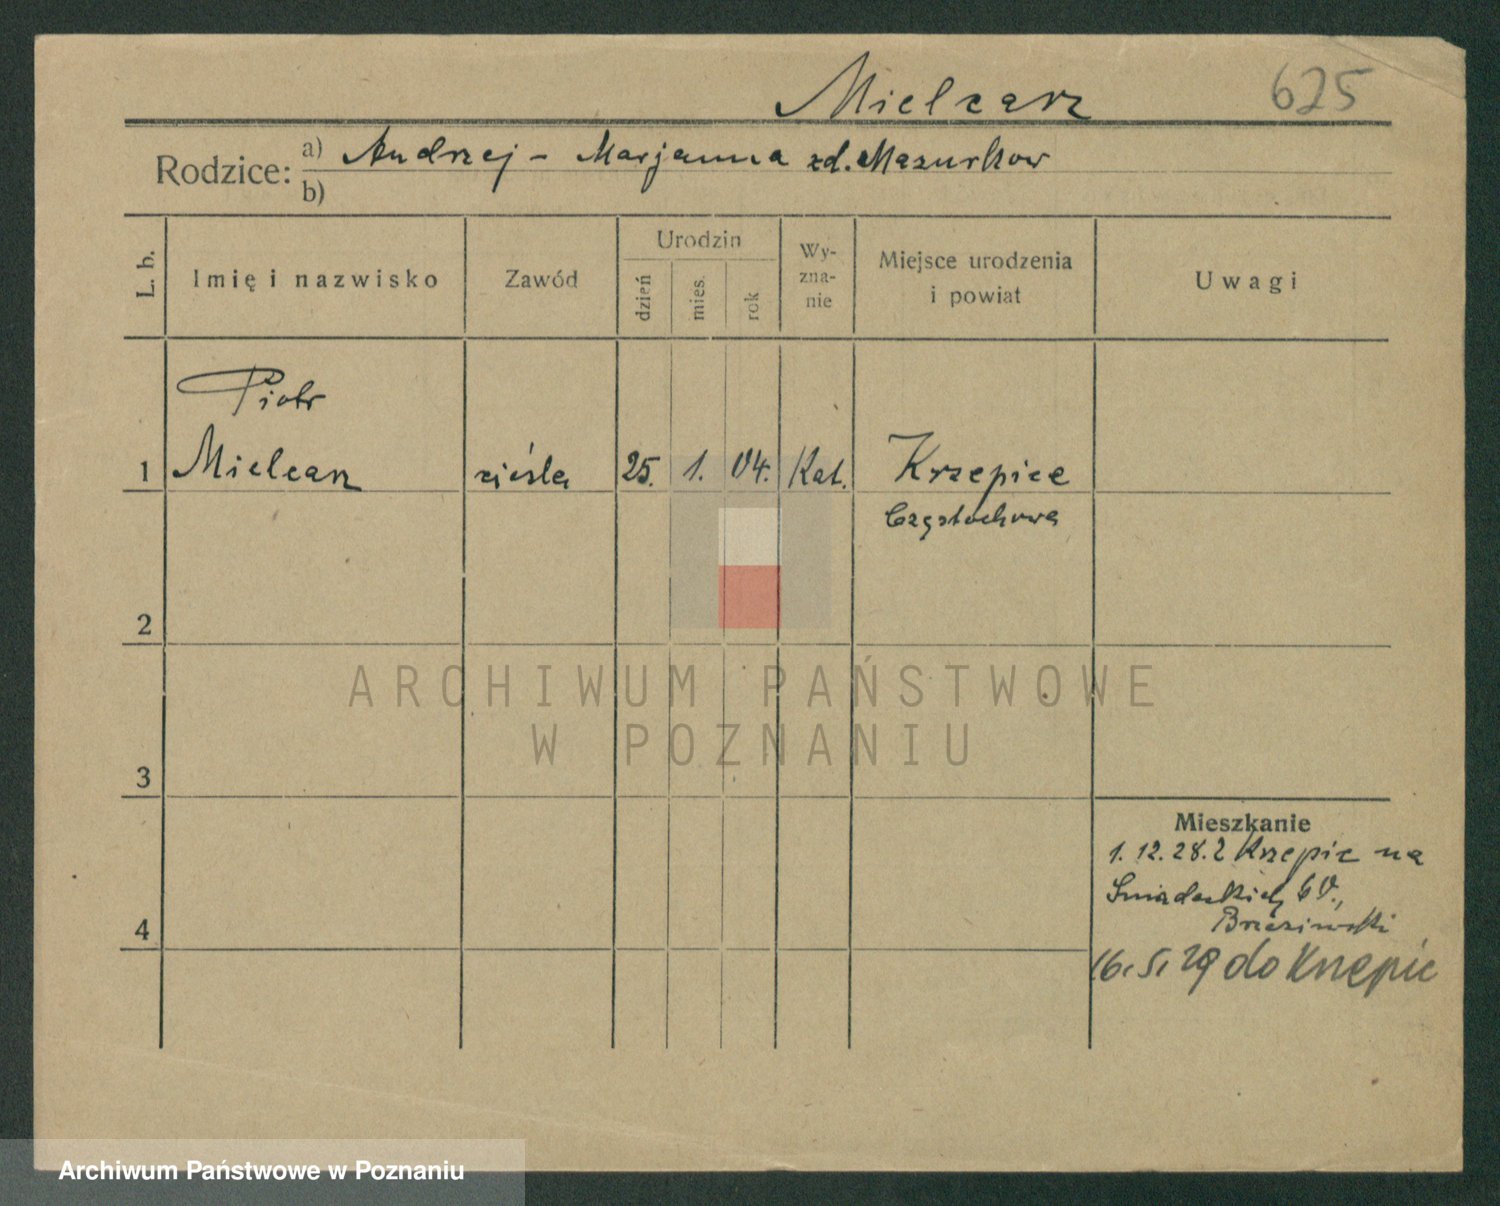 Mielcarz 625
Rodzice: a) Andrzej - Marjanna zd. Mazurków
b)
L. b. Imię i nazwisko Zawód Urodzin dzień mies. rok Wy-zna-nie Miejsce urodzenia i powiat Uwagi
Piotr
1 Mielcarz cieśla 25. 1. 04. Kat. Krzepice
Częstochowa
2
ARCHIWUM PAŃSTWOWE
W POZNANIU
3
Mieszkanie
1. 12. 28. z Krzepic na
Śniadeckich 6
4
16. 5. 29 do Krzepic
Archiwum Państwowe w Poznaniu